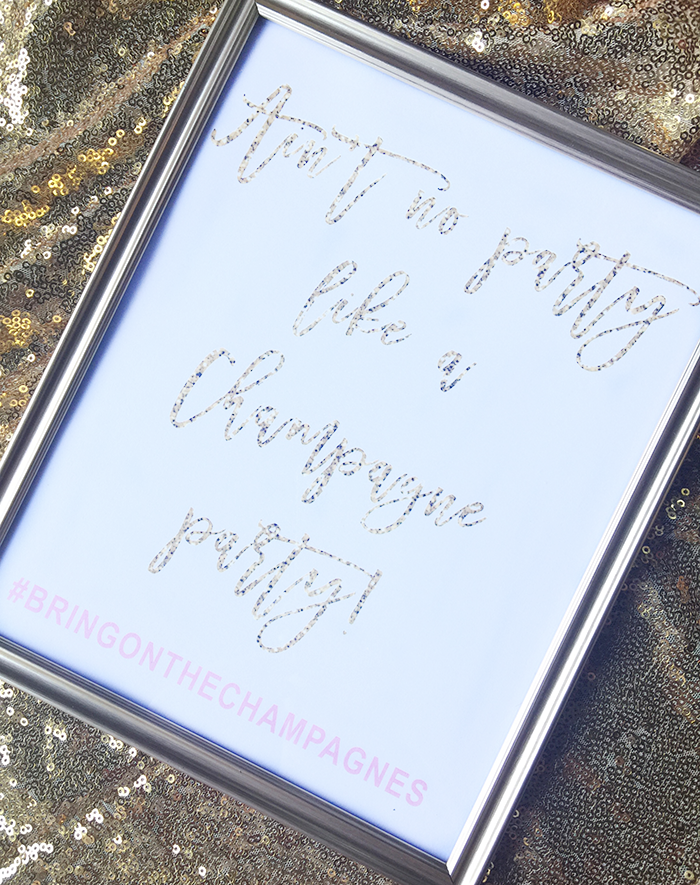 Ain't no party
like a
Champagne
party!
#BRINGONTHECHAMPAGNES